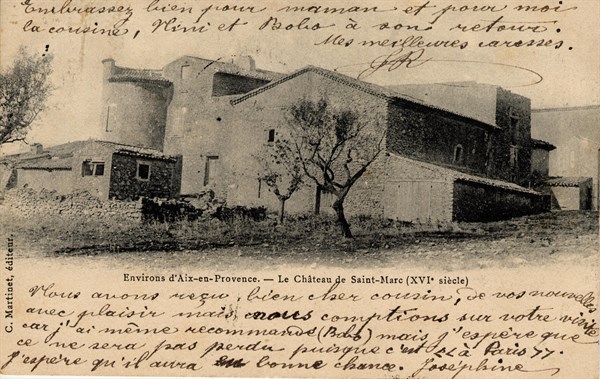 Embrassez bien pour maman et pour moi
la cousine, Nini et Bobo à son retour.
Mes meilleures caresses.
JR
C. Martinet, éditeur.
Environs d'Aix-en-Provence. — Le Château de Saint-Marc (XVIe siècle)
Nous avons reçu, bien cher cousin, de vos nouvelles
avec plaisir mais, nous comptions sur votre visite
car j'ai même recommandé (Bobo) mais j'espère que
ce ne sera pas perdu puisque c'est à Paris
J'espère qu'il aura bonne chance. Joséphine